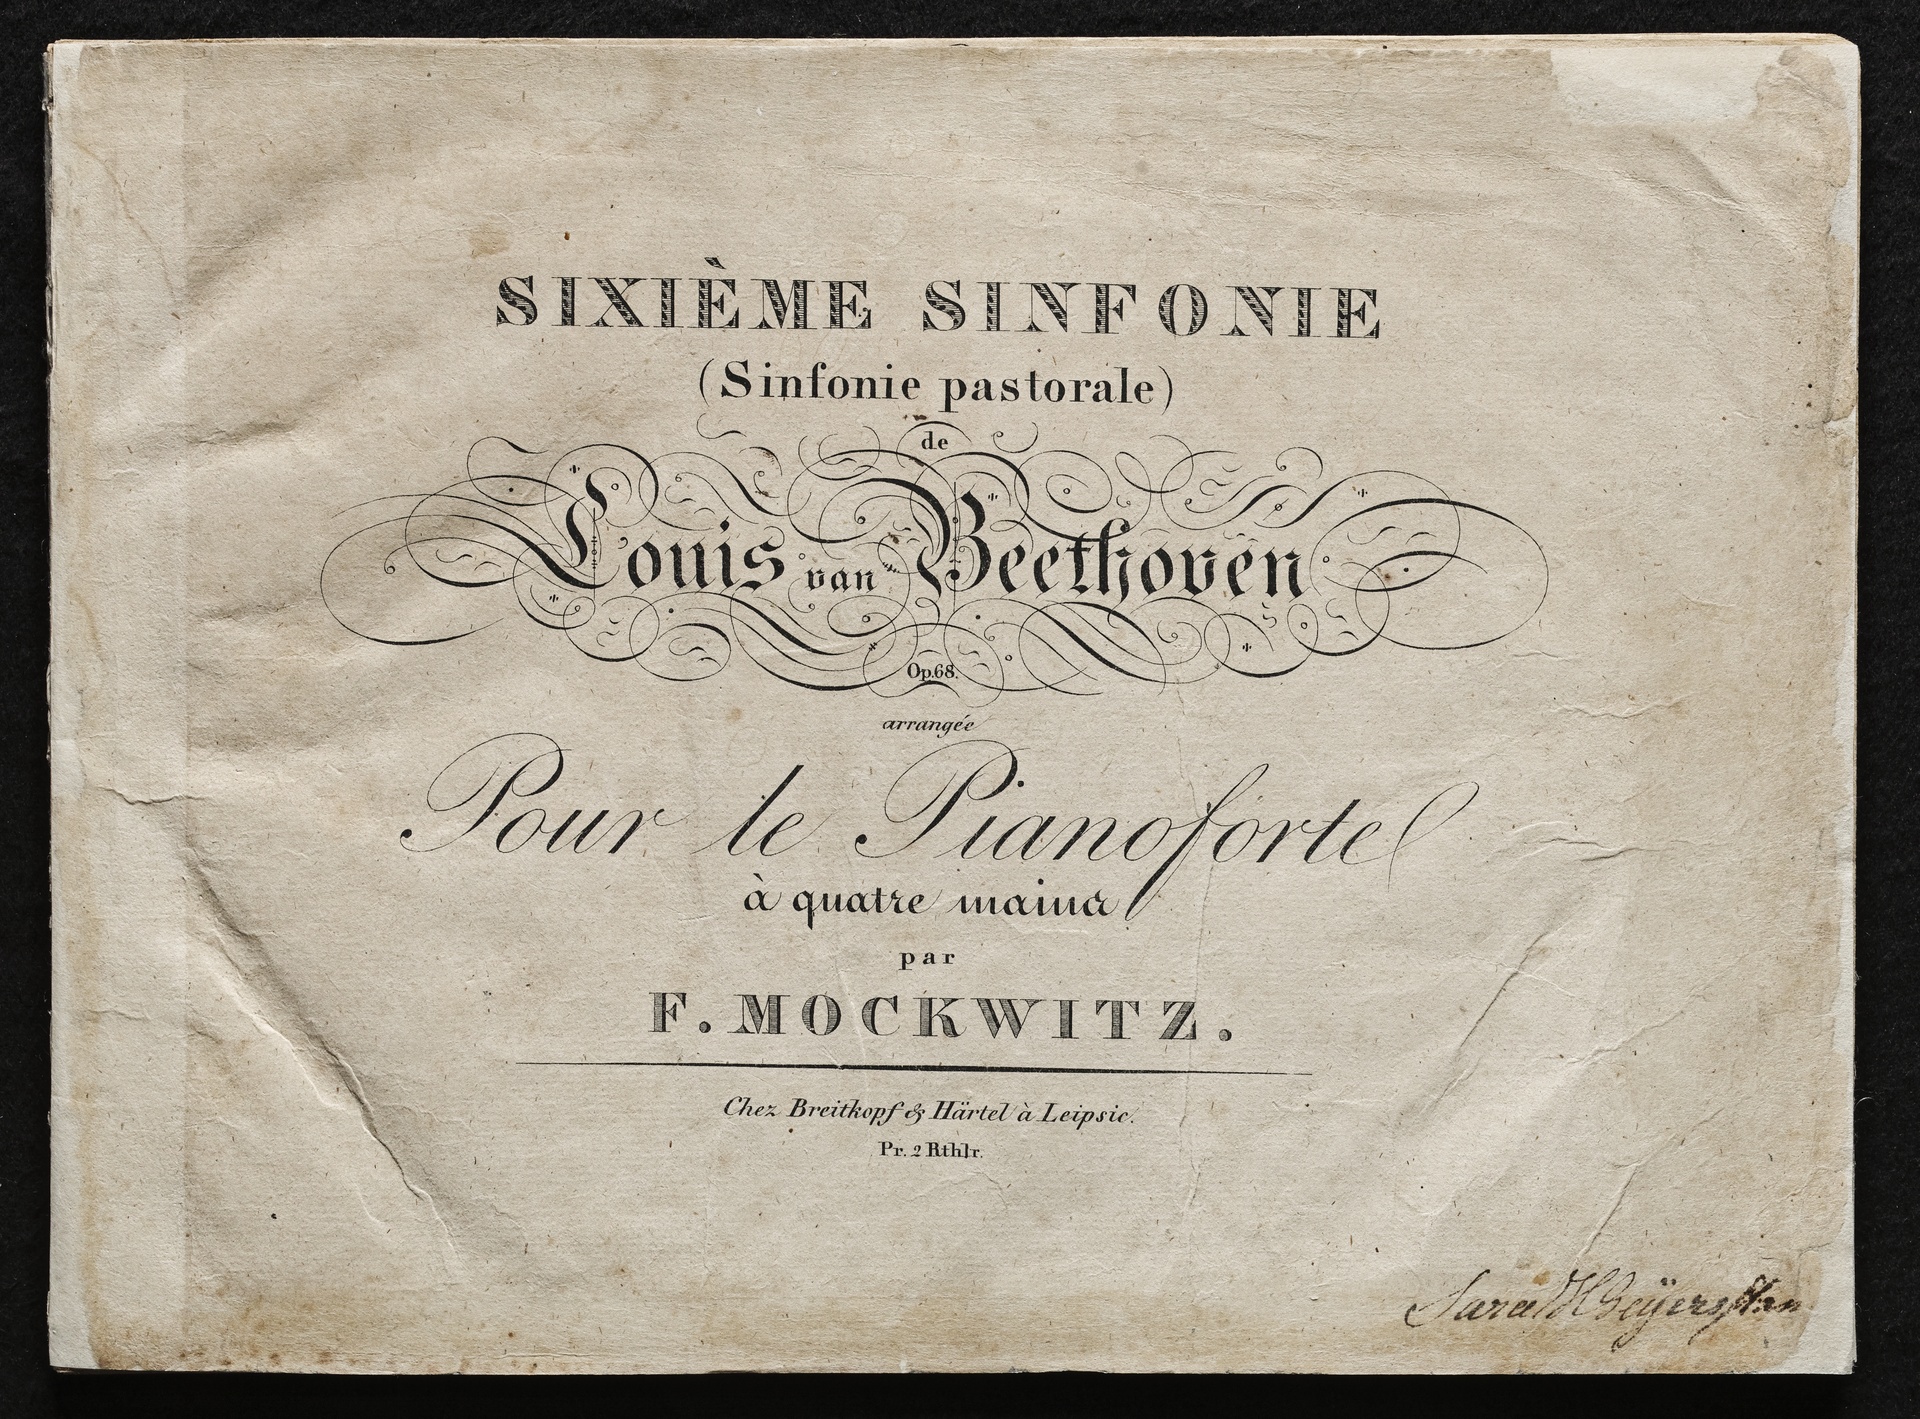 SIXIÈME SINFONIE
(Sinfonie pastorale)
de
Louis van Beethoven
Op. 68.
arrangée
Pour le Pianoforte
à quatre mains
par
F. MOCKWITZ.
Chez Breitkopf & Härtel à Leipsic.
Pr. 2 Rthlr.